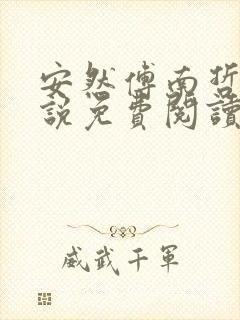 安然傅南哲
說免費閱讀
威武千軍